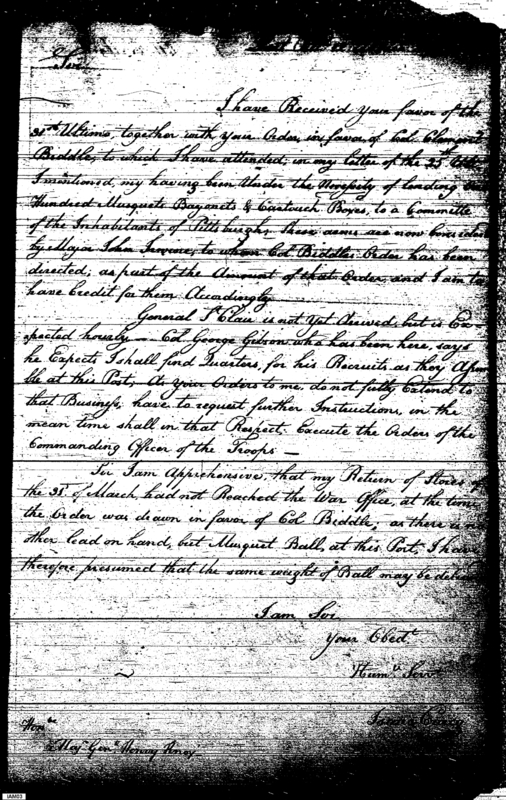 Sir
I have Received your favor of the
31st Ultimo, together with your Order, in favor of Col. Clement
Biddle, to which I have attended, in my letter of the 25
I mentioned, my having been Under the Necessity of lending
Hundred Musquets Bayonets & Cartouch Boxes, to a Committe
of the Inhabitants of Pittsburgh, These arms are now Consider
by Major John Irwine, to whom Col Biddles Order has been
directed; as part of the Amount of that Order and I am to
have Credit for them Accordingly
General St Clair is not Yet Arrived, but is Ex-
pected hourly — Col. George Gibson who has been here, says
he Expects I shall find Quarters, for his Recruits as they Assem
ble at this Post, As your Orders to me, do not fully Extend to
that Business, have to request further Instructions, in the
mean time shall in that Respect, Execute the Orders of the
Commanding Officer of the Troops —
Sir I am Apprehensive, that my Return of Stores of
the 31st of March, had not Reached the War Office, at the time
the Order was drawn in favor of Col Biddle; as there is
other lead on hand, but Musquet Ball, at this Post, I have
therefore presumed that the same weight of Ball may be
I am Sir
Your Obedt
Humle Servt
Isaac Craig
Honble
Majr Genl Henry Knox
IAM03